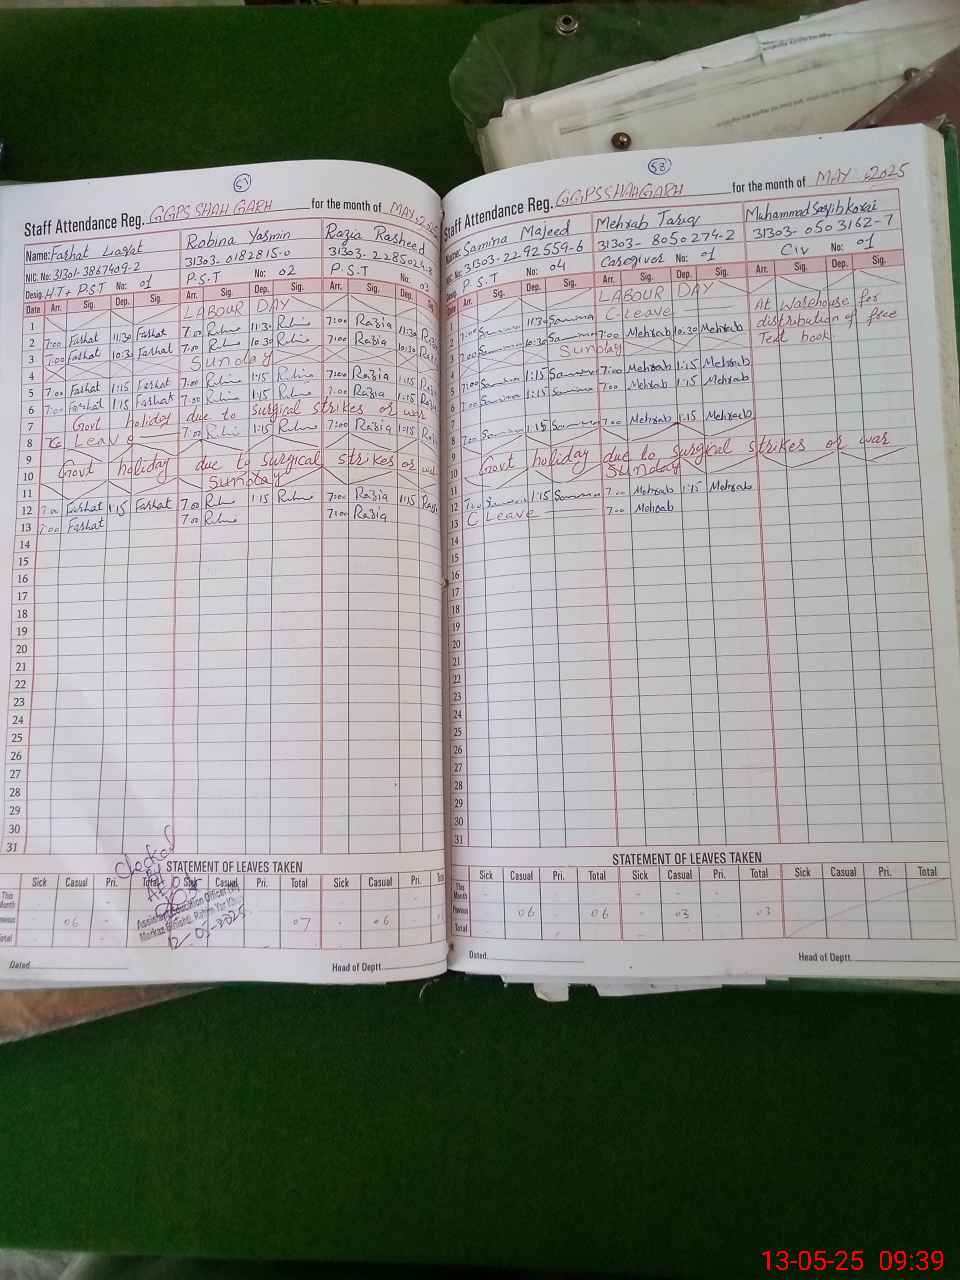 51
Staff Attendance Reg. GGPS SHAH GARH for the month of MAY.2025
Name: Farhat Liaqat Robina Yasmin Razia Rasheed
NIC. No: 31301-3887409-2 31303-0182815-0 31303-2285024-8
Desig: H.T+ P.S.T No: 01 P.S.T No: 02 P.S.T No: 03
Date Arr. Sig. Dep. Sig. Arr. Sig. Dep. Sig. Arr. Sig. Dep. Sig.
1 LABOUR DAY
2 7:00 Farhat 11:30 Farhat 7:00 11:30 7:00 Razia 11:30
3 7:00 Farhat 10:30 Farhat 7:00 10:30 7:00 Razia 10:30
4 Sunday
5 7:00 Farhat 1:15 Farhat 7:00 1:15 7:00 Razia 1:15
6 7:00 Farhat 1:15 Farhat 7:00 1:15 7:00 Razia 1:15
7 Govt holiday due to surgical strikes or war
8 Leave 7:00 1:15 7:00 Razia 1:15
9
10 Govt holiday due to surgical strikes or war
11 Sunday
12 7:00 Farhat 1:15 Farhat 7:00 1:15 7:00 Razia 1:15
13 7:00 Farhat 7:00 7:00 Razia
14
15
16
17
18
19
20
21
22
23
24
25
26
27
28
29
30
31
Checked
STATEMENT OF LEAVES TAKEN
Sick Casual Pri. Total Sick Casual Pri. Total Sick Casual Pri.
This Month
Previous 06 07 06
Total
Assistant Education Officer
12-05-2025
Dated Head of Deptt.
53
Staff Attendance Reg. GGPS SHAH GARH for the month of MAY.2025
Name: Samina Majeed Mehrab Tariq Muhammad
NIC. No: 31303-2292559-6 31303-8050274-2 31303-0503162-7
Desig: P.S.T No: 04 Caregiver No: 01 No: 01
Date Arr. Sig. Dep. Sig. Arr. Sig. Dep. Sig. Arr. Sig. Dep. Sig.
1 LABOUR DAY
2 7:00 11:30 C.Leave
3 7:00 10:30 7:00 Mehrab 10:30 Mehrab
At Warehouse for
distribution of free
Text book.
4 Sunday
5 7:00 1:15 7:00 Mehrab 1:15 Mehrab
6 7:00 1:15 7:00 Mehrab 1:15 Mehrab
7
8 7:00 1:15 7:00 Mehrab 1:15 Mehrab
9
10 Govt holiday due to surgical strikes or war
11 Sunday
12 7:00 1:15 7:00 Mehrab 1:15 Mehrab
13 C Leave 7:00 Mehrab
14
15
16
17
18
19
20
21
22
23
24
25
26
27
28
29
30
31
STATEMENT OF LEAVES TAKEN
Sick Casual Pri. Total Sick Casual Pri. Total Sick Casual Pri. Total
This Month
Previous 06 06 03 03
Total
Dated Head of Deptt.
13-05-25 09:39